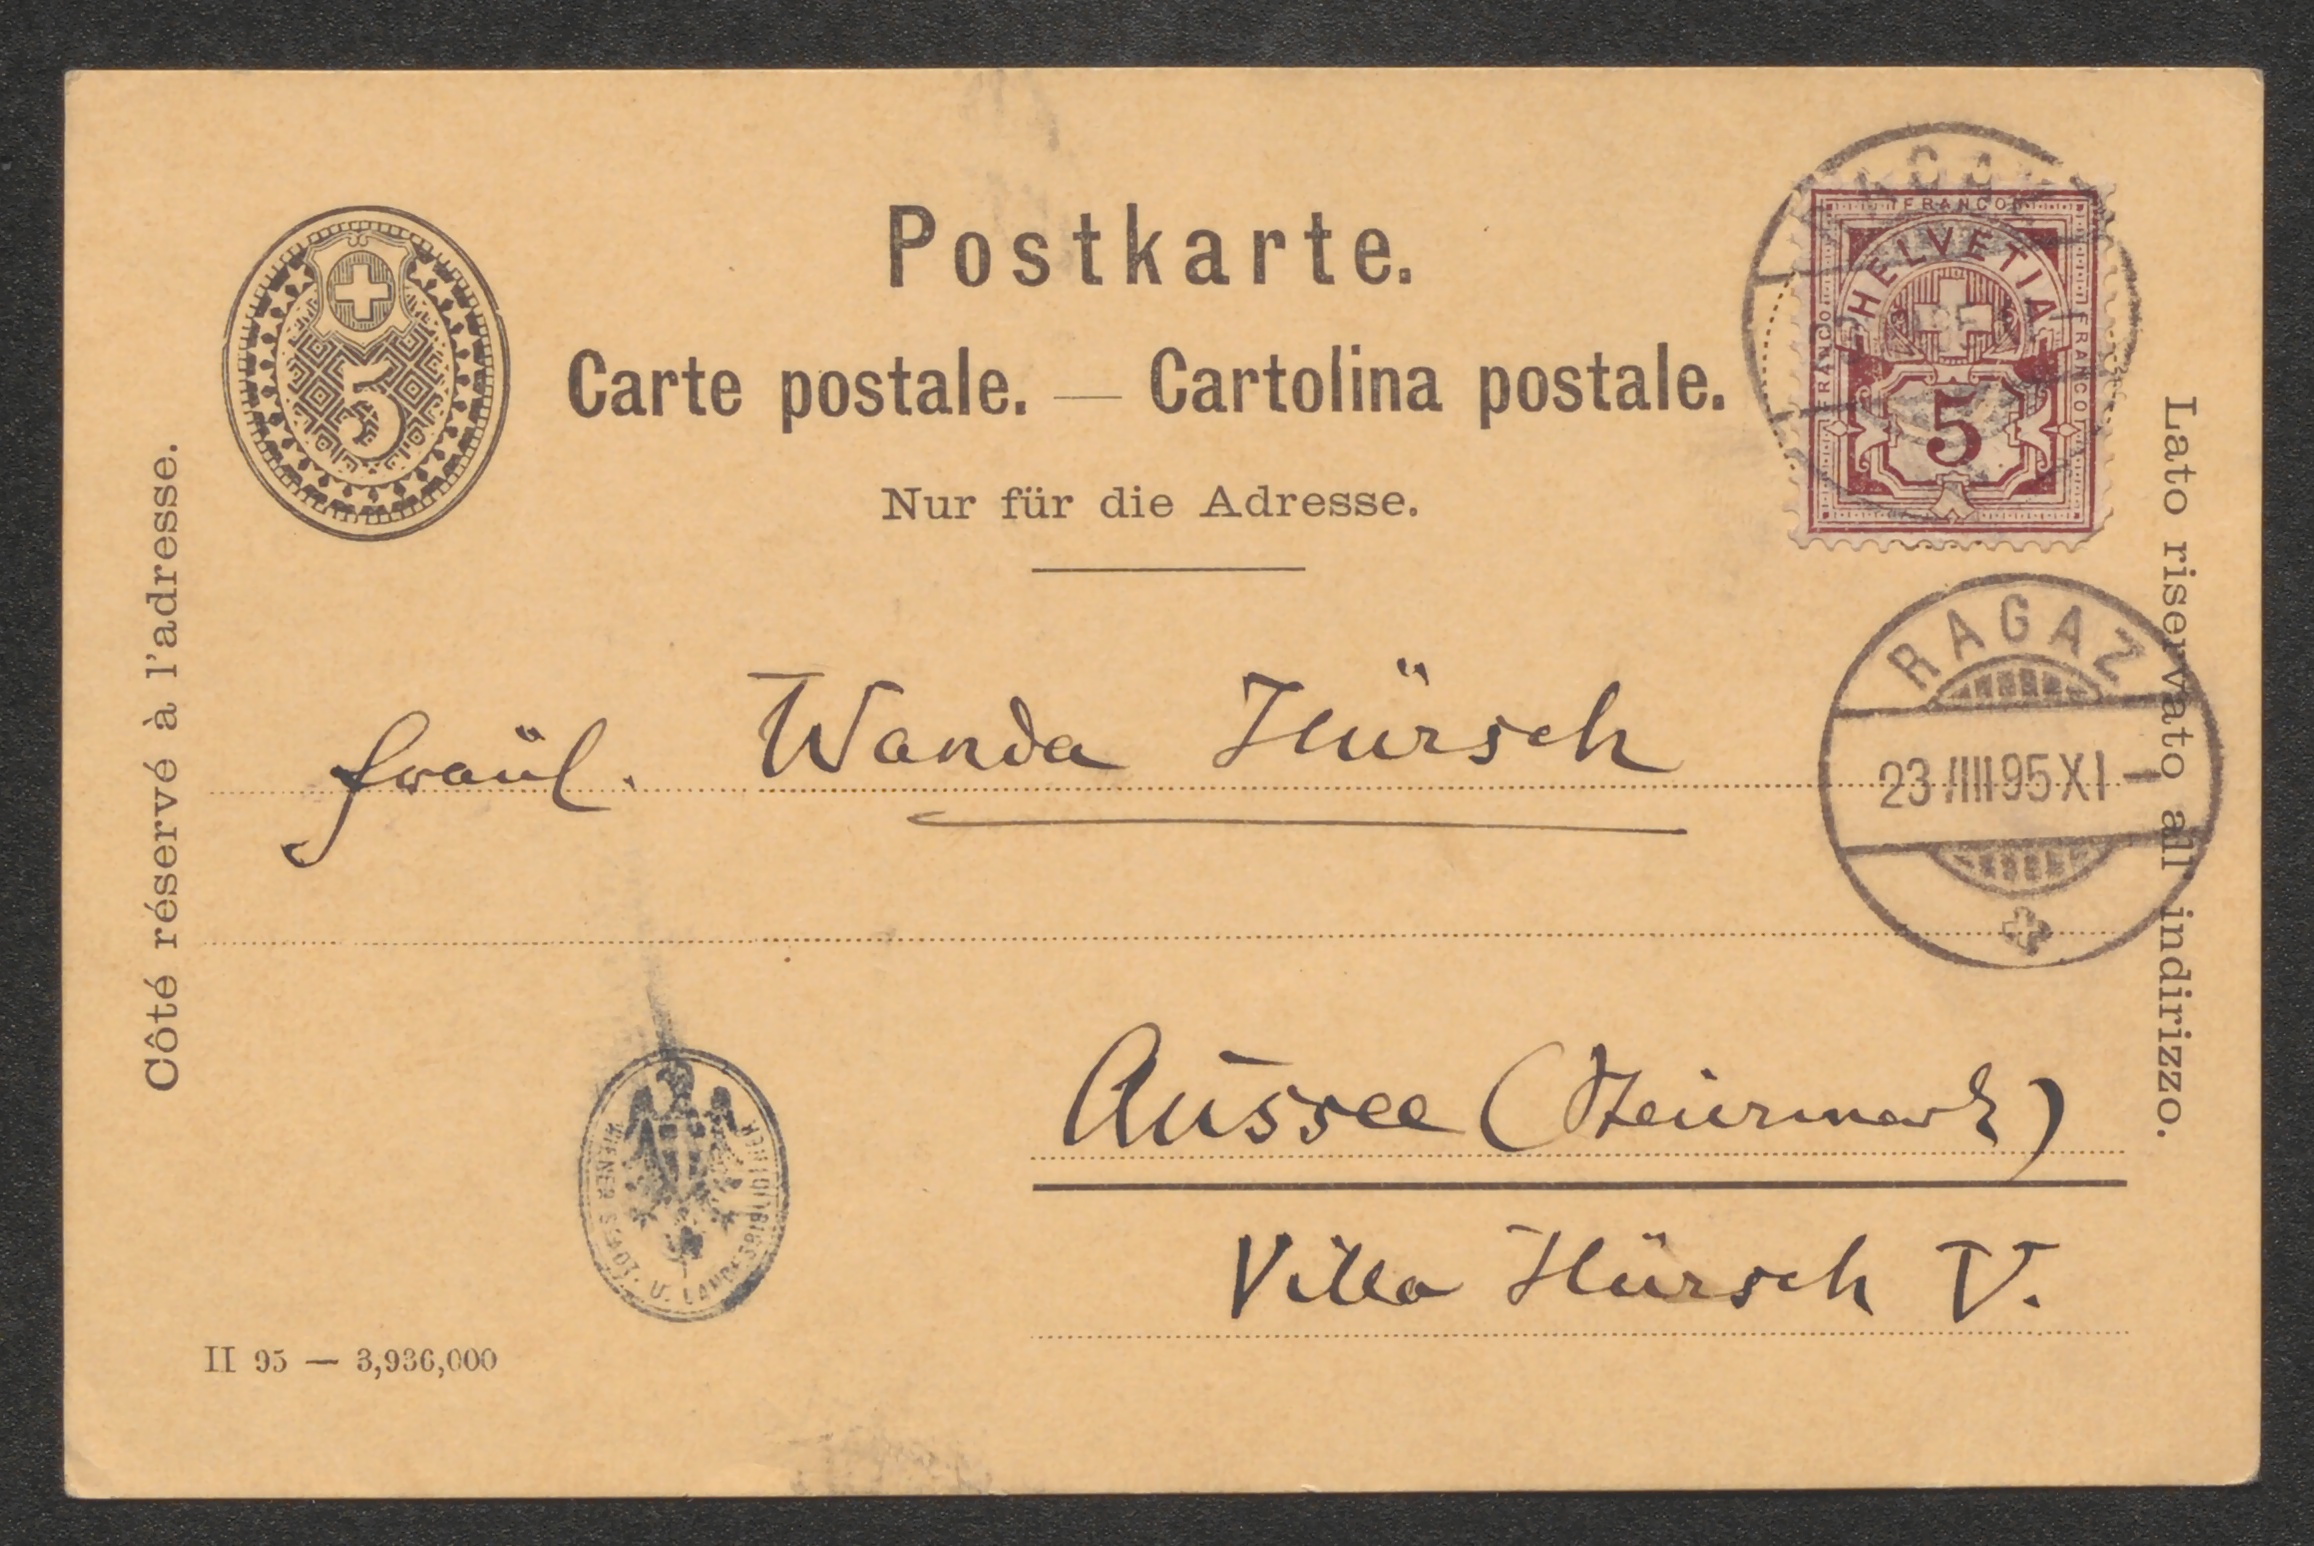 Postkarte.
Carte postale. — Cartolina postale.
Nur für die Adresse.
Côté réservé à l'adresse.
Lato riservato all indirizzo.
5
FRANCO
HELVETIA
FRANCO
FRANCO
5
RAGAZ
RAGAZ
23 VIII 95 XI –
Fräul. Wanda Hürsch
Aussee (Steiermark)
Villa Hürsch V.
WIENER STADT. U. LANDESBIBLIOTHEK
II 95 — 3,936,000